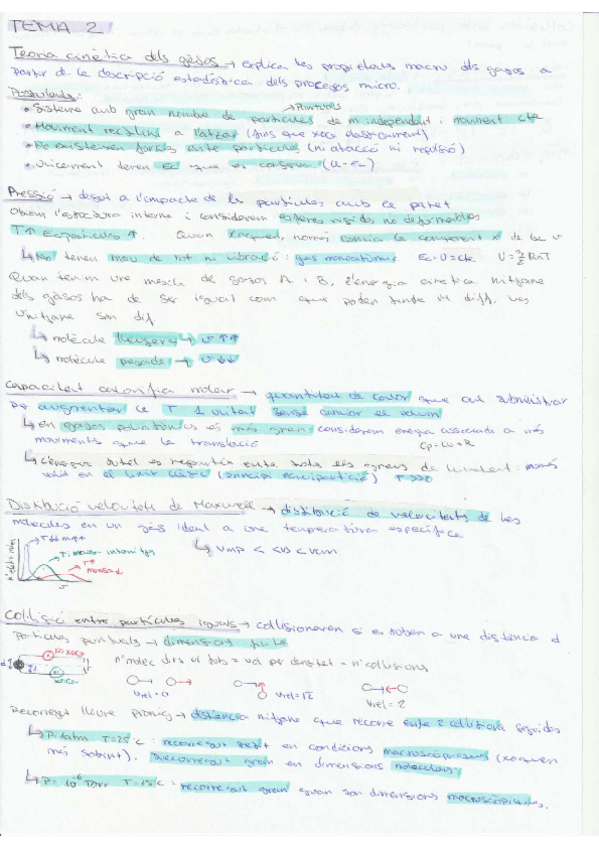 TEMA 2
Teoria cinètica dels gasos → explica les propietats macro dels gasos a
partir de la descripció estadística dels processos micro.
Postulats:
→ Puntuals
• Sistema amb gran nombre de partícules de m independent i moviment cte
• Moviment rectilini a l'atzar (fins que xoca elàsticament)
• No existeixen forces entre partícules (ni atracció ni repulsió)
• Únicament tenen Ec que es conserva. (U=Ec)
Pressió → degut a l'impacte de les partícules amb la paret
l'estructura interna i considerem esferes rígides no deformables
T↑ Ec partícules ↑. Quan xoquen, només canvia la component x de la v
↳ No tenen mov de rot ni vibració: gas monoatòmic Ec=U=cte U=3/2 RnT
Quan tenim una mescla de gasos A i B, l'energia cinètica mitjana
dels gasos ha de ser igual com que poden tindre M diff, les
v mitjane son dif.
↳ molècula lleugera → v ↑↑
↳ molècula pesada → v ↓↓
Capacitat calorífica molar → quantitat de calor que cal subministrar
per augmentar la T 1 unitat sense canviar el volum
↳ en gasos poliatòmics és més gran considerem energia associada a més
moviments que la translació Cp=Cv+R
↳ L'energia total es reparteix entre tots els graus de llibertat: només
vàlid en el límit clàssic (principi equipartició) T>>0
Distribució velocitats de Maxwell → distribució de velocitats de les
molècules en un gas ideal a una temperatura específica
↳ vmp < <v> < vcm
v
Col·lisió entre partícules iguals → col·lisionaran si es troben a una distància d
Partícules puntuals → dimensions finites
nº molec dins el tub = vol per densitat = nº col·lisions
vrel=0 vrel=√2 vrel=2
Recorregut lliure → distància mitjana que recorre entre 2 col·lisions seguides
↳ P=1atm T=25ºC: recorregut petit en condicions macroscòpiques (xoquen
més sovint). Recorregut gran en dimensions moleculars.
↳ P=10⁻⁶ Torr T=25ºC: recorregut gran quan son dimensions macroscòpiques.